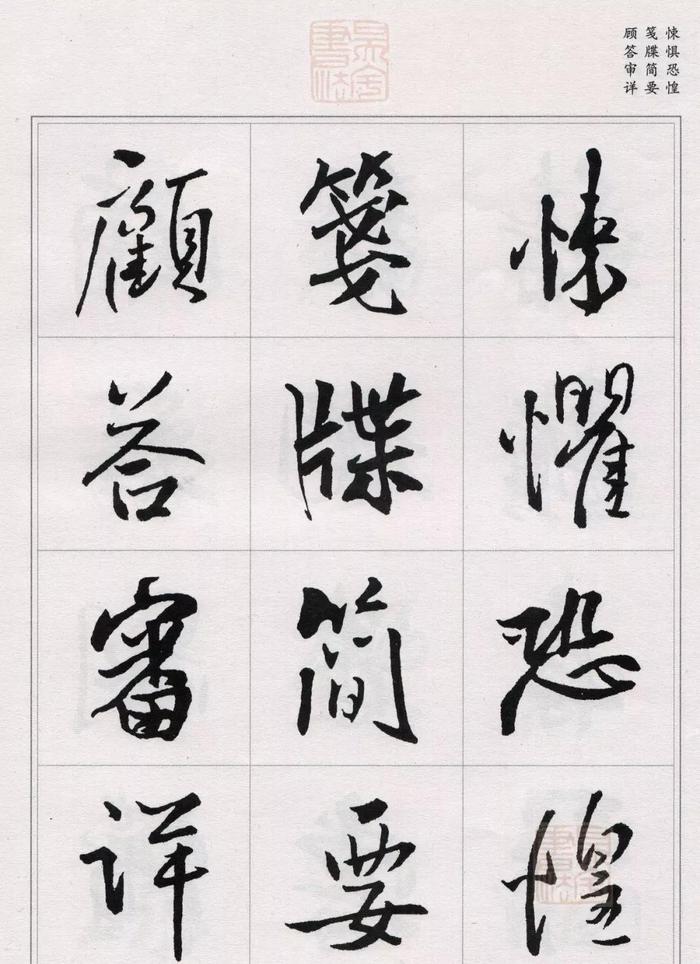 悚惧恐惶
笺牒简要
顾答审详
悚懼恐惶
箋牒简要
顧答審详